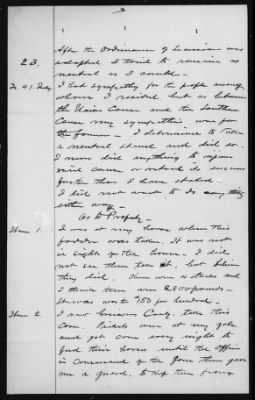 After the Ordinance of Secession was
23. adopted I tried to remain as
neutral as I could.
To 41. I had sympathy for the people among
whom I resided, but as between
the Union Cause and the Southern
Cause my sympathies was for
the former. I determined to take
a neutral stand and did so.
I never did anything to injure
said cause or retard its success
further than I have stated.
I did not want to do any thing
either way.
As to Property.
Item 1. I was at my house when this
fodder was taken. It was not
in sight of the house. I did
not see them take it, but
they did. There was 4 stacks and
I think there was 2000 pounds.
It was worth 1.50 per hundred.
Item 2. I saw Cavalry take this
Corn. Pickets were at my gate
and got corn every night to
feed their horses until the officer
in command of the force there gave
me a guard, to keep them from